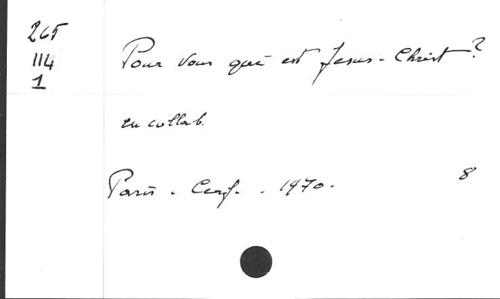 265
114
1
Pour vous qui est Jesus-Christ?
en collab.
Paris. Cerf. . 1970.
8